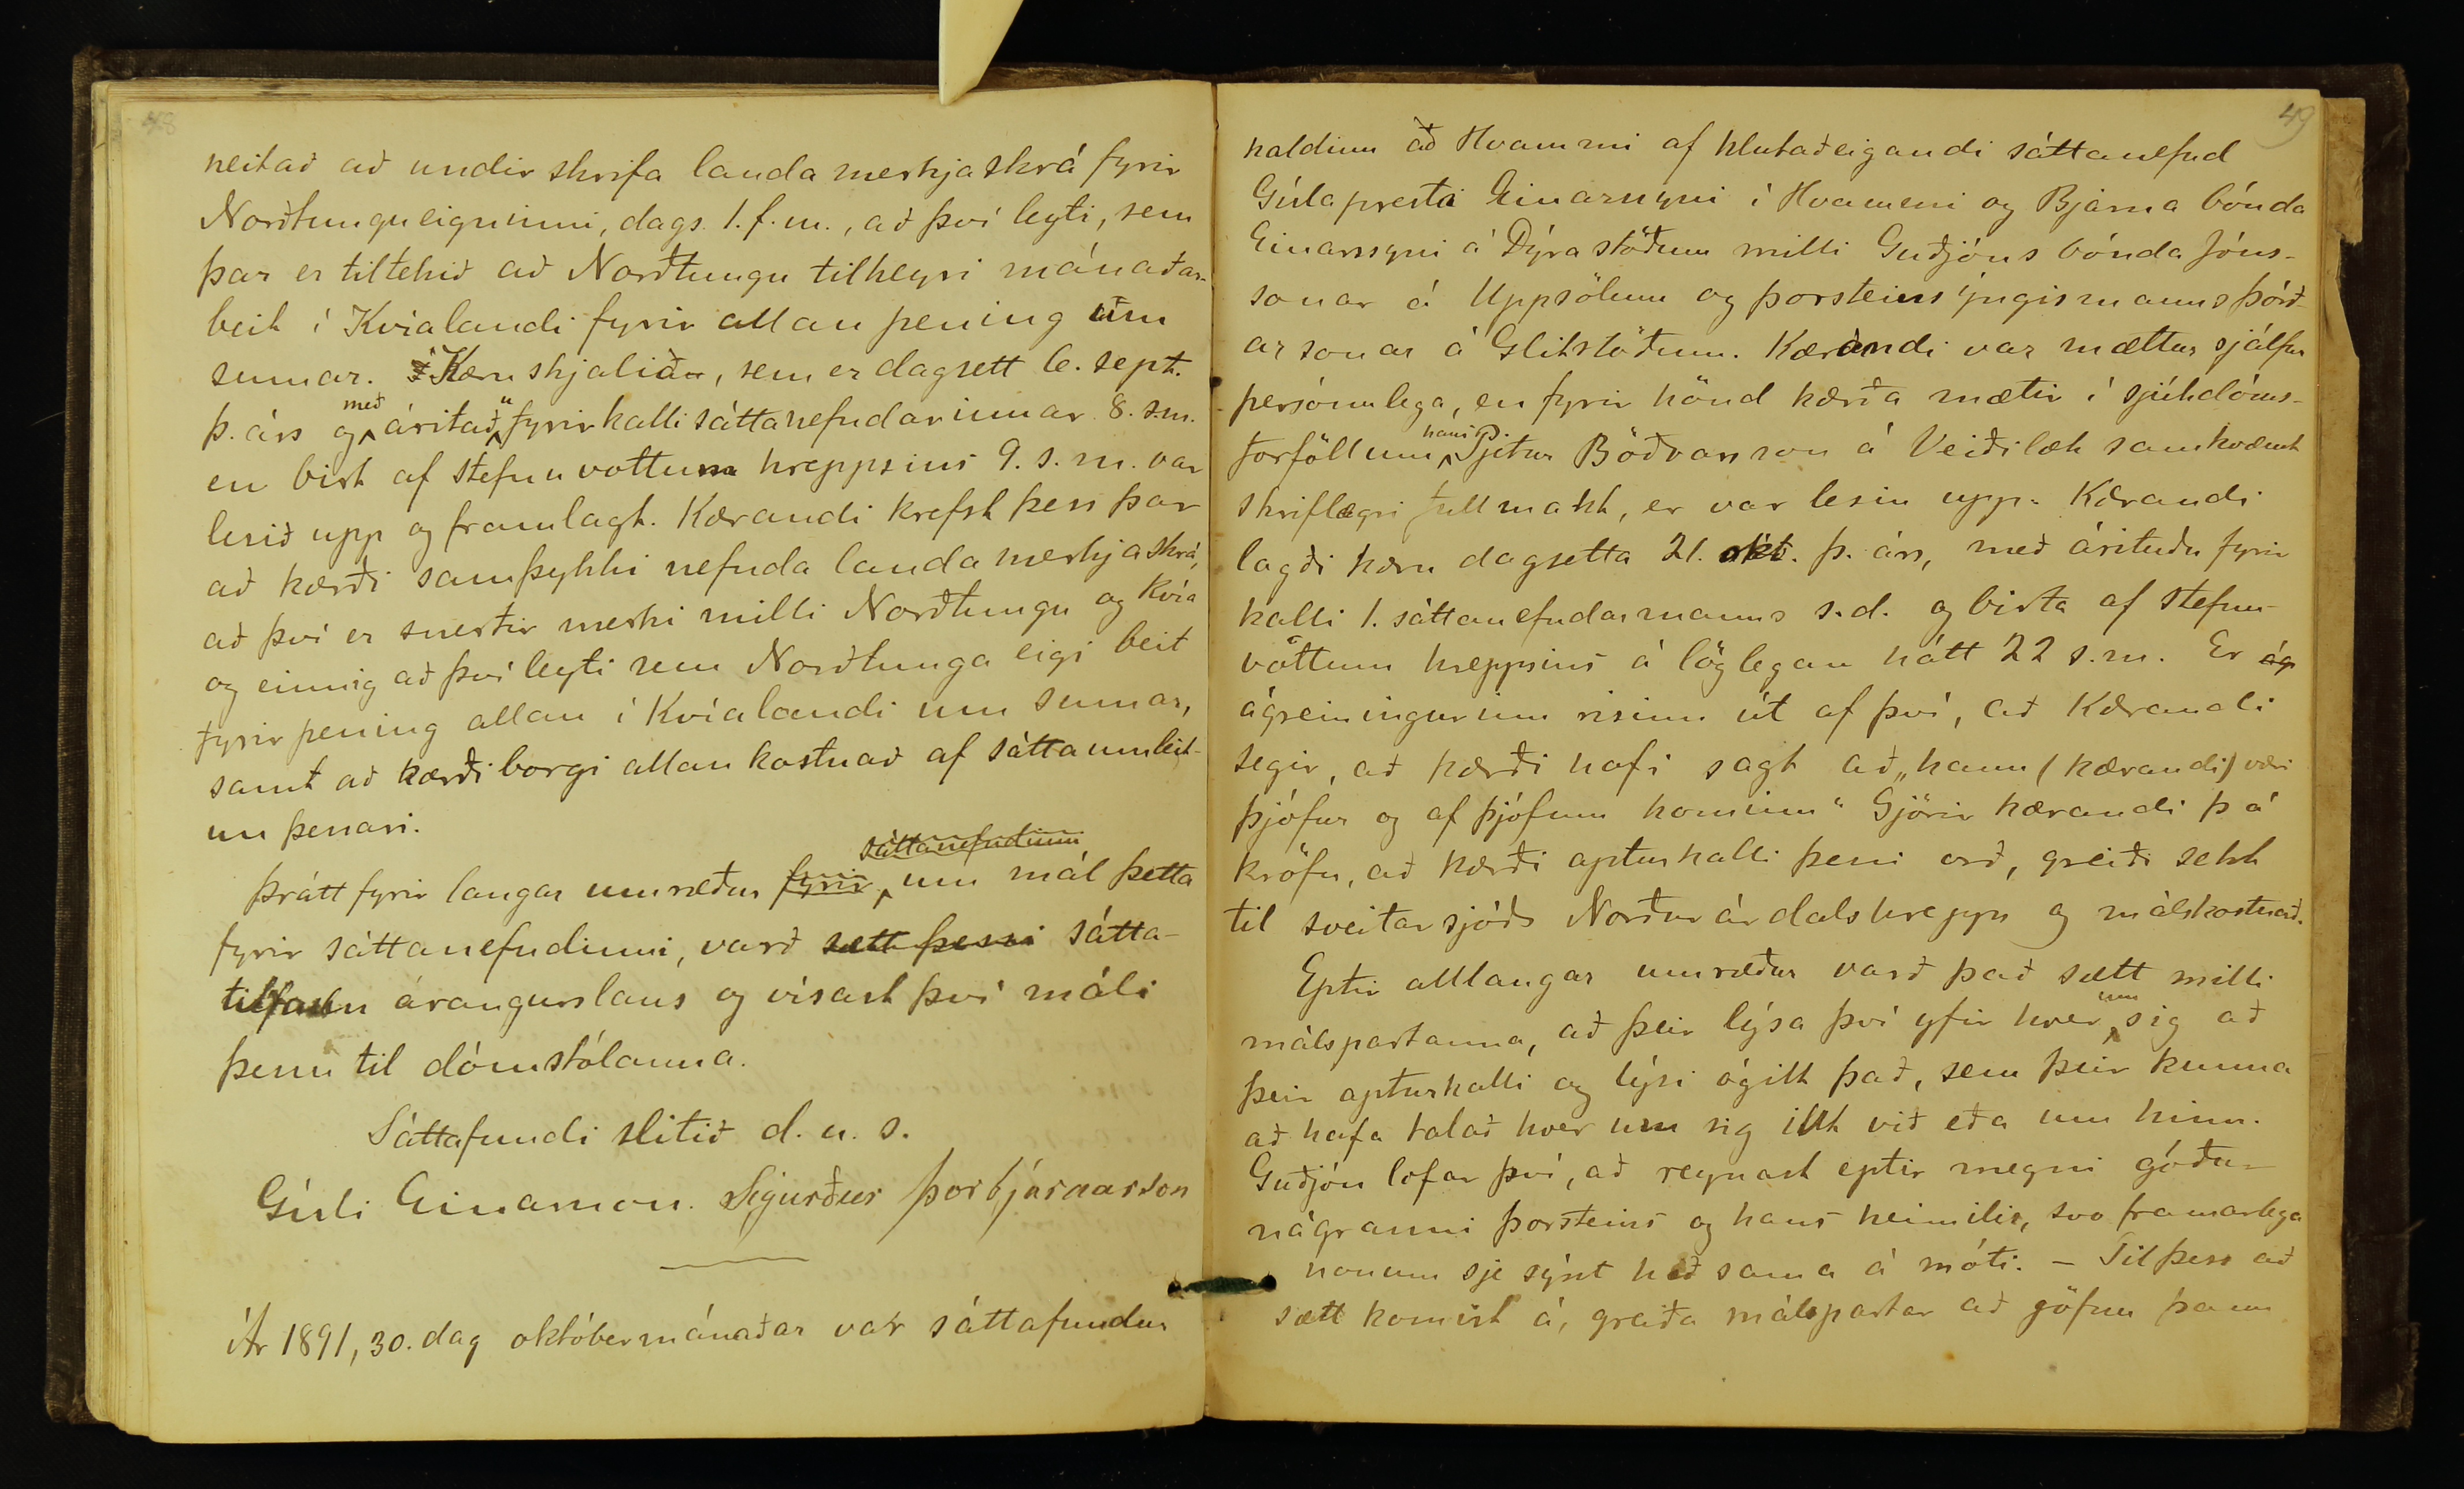 48
neitað að undir skrifa landa merkjaskrá fyrir
Norðtungueigninni, dags. 1. f. m., að því leyti, sem
þar er tiltekið að Norðtungu tilheyri mánaðar-
beit í Kvíalandi fyrir allan pening um
sumar. Kæruskjalið, sem er dagsett 6. sept.
þ. árs og með árituðu fyrirkalli sáttanefndarinnar 8. s.m.
en birt af stefnuvottum hreppsins 9. s. m. var
lesið upp og framlagt. Kærandi krefst þess þar
að kærði samþykki nefnda landa merkjaskrá,
að því er snertir merki milli Norðtungu og Kvía
og einnig að því leyti sem Norðtunga eigi beit
fyrir pening allan í Kvíalandi um sumar,
samt að kærði borgi allan kostnað af sáttaumleit-
un þessari.
Þrátt fyrir langar umræður fyrir sáttanefndinni um mál þetta
fyrir sáttanefndinni, varð sætt þessi sátta-
tilraun árangurslaus og vísast því máli
þessu til dómstólanna.
Sáttafundi slitið d. u. s.
Gísli Einarsson. Sigurður Þorbjarnarson
Ár 1891, 30. dag októbermánaðar var sáttafundur
49
haldinn að Hvammi af hlutaðeigandi sáttanefnd
Gísla presti Einarssyni í Hvammi og Bjarna bónda
Einarssyni á Dýrastöðum milli Guðjóns bónda Jóns-
sonar á Uppsölum og Þorsteins yngismanns Þórð-
arsonar á Glitstöðum. Kærandi var mættur sjálfur
persónulega, en fyrir hönd kærða mætir í sjúkdóms-
forföllum hans Pjetur Böðvarsson á Veiðilæk samkvæmt
skriflegri fullmakt, er var lesin upp. Kærandi
lagði kæru dagsetta 21. okt. þ. árs, með árituðu fyrir
kalli 1. sáttanefndarmanns s. d. og birta af stefnu-
vottum hreppsins á löglegan hátt 22 s. m. Er ág
ágreiningurinn risinn út af því, að Kærandi
segir, að kærði hafi sagt að „hann (kærandi) væri
þjófur og af þjófum kominn“ Gjörir kærandi þá
kröfu, að kærði apturkalli þessi orð, greiði sekt
til sveitarsjóðs Norðurárdalshrepps og málskostnað.
Eptir alllangar umræður varð það sætt milli
málspartanna, að þeir lýsa því yfir hver um sig að
þeir apturkalli og lýsi ógilt það, sem þeir kunna
að hafa talað hver um sig illt við eða um hinn.
Guðjón lofar því, að reynast eptir megni góður
nágranni Þorsteins og hans heimilis, svo framarlega
honum sje sýnt hið sama á móti. – Til þess að
sætt komist á, greiða málspartar að jöfnu þann